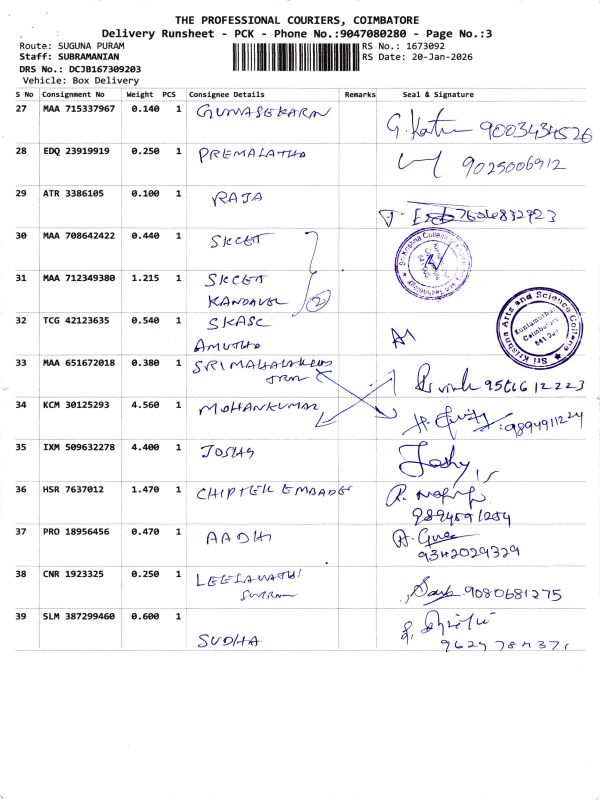 THE PROFESSIONAL COURIERS, COIMBATORE
Delivery Runsheet - PCK - Phone No.:9047080280 - Page No.:3
Route: SUGUNA PURAM RS No.: 1673092
Staff: SUBRAMANIAN RS Date: 20-Jan-2026
DRS No.: DCJB167309203
Vehicle: Box Delivery
S No Consignment No Weight PCS Consignee Details Remarks Seal & Signature
27 MAA 715337967 0.140 1 GUNASEKARN
9003434526
28 EDQ 23919919 0.250 1 PREMALATHA
9025006912
29 ATR 3386105 0.100 1 RAJA
7604832923
30 MAA 708642422 0.440 1 SKCET
Sri Krishna College of
and Technology
31 MAA 712349380 1.215 1 SKCET
KANDAVEL 2
32 TCG 42123635 0.540 1 SKASC
AMUTHA
Sri Krishna Arts and Science College
Kuniamuthur
Coimbatore
33 MAA 651672018 0.380 1 SRIMAHALAKLUS
34 KCM 30125293 4.560 1 MOHANKUMAR
9894911224
35 IXM 509632278 4.400 1
Joshy
36 HSR 7637012 1.470 1 CHIPTEK
37 PRO 18956456 0.470 1 AADHI
9342029329
38 CNR 1923325 0.250 1 LEELAVATHI
9080681275
39 SLM 387299460 0.600 1 SUDHA